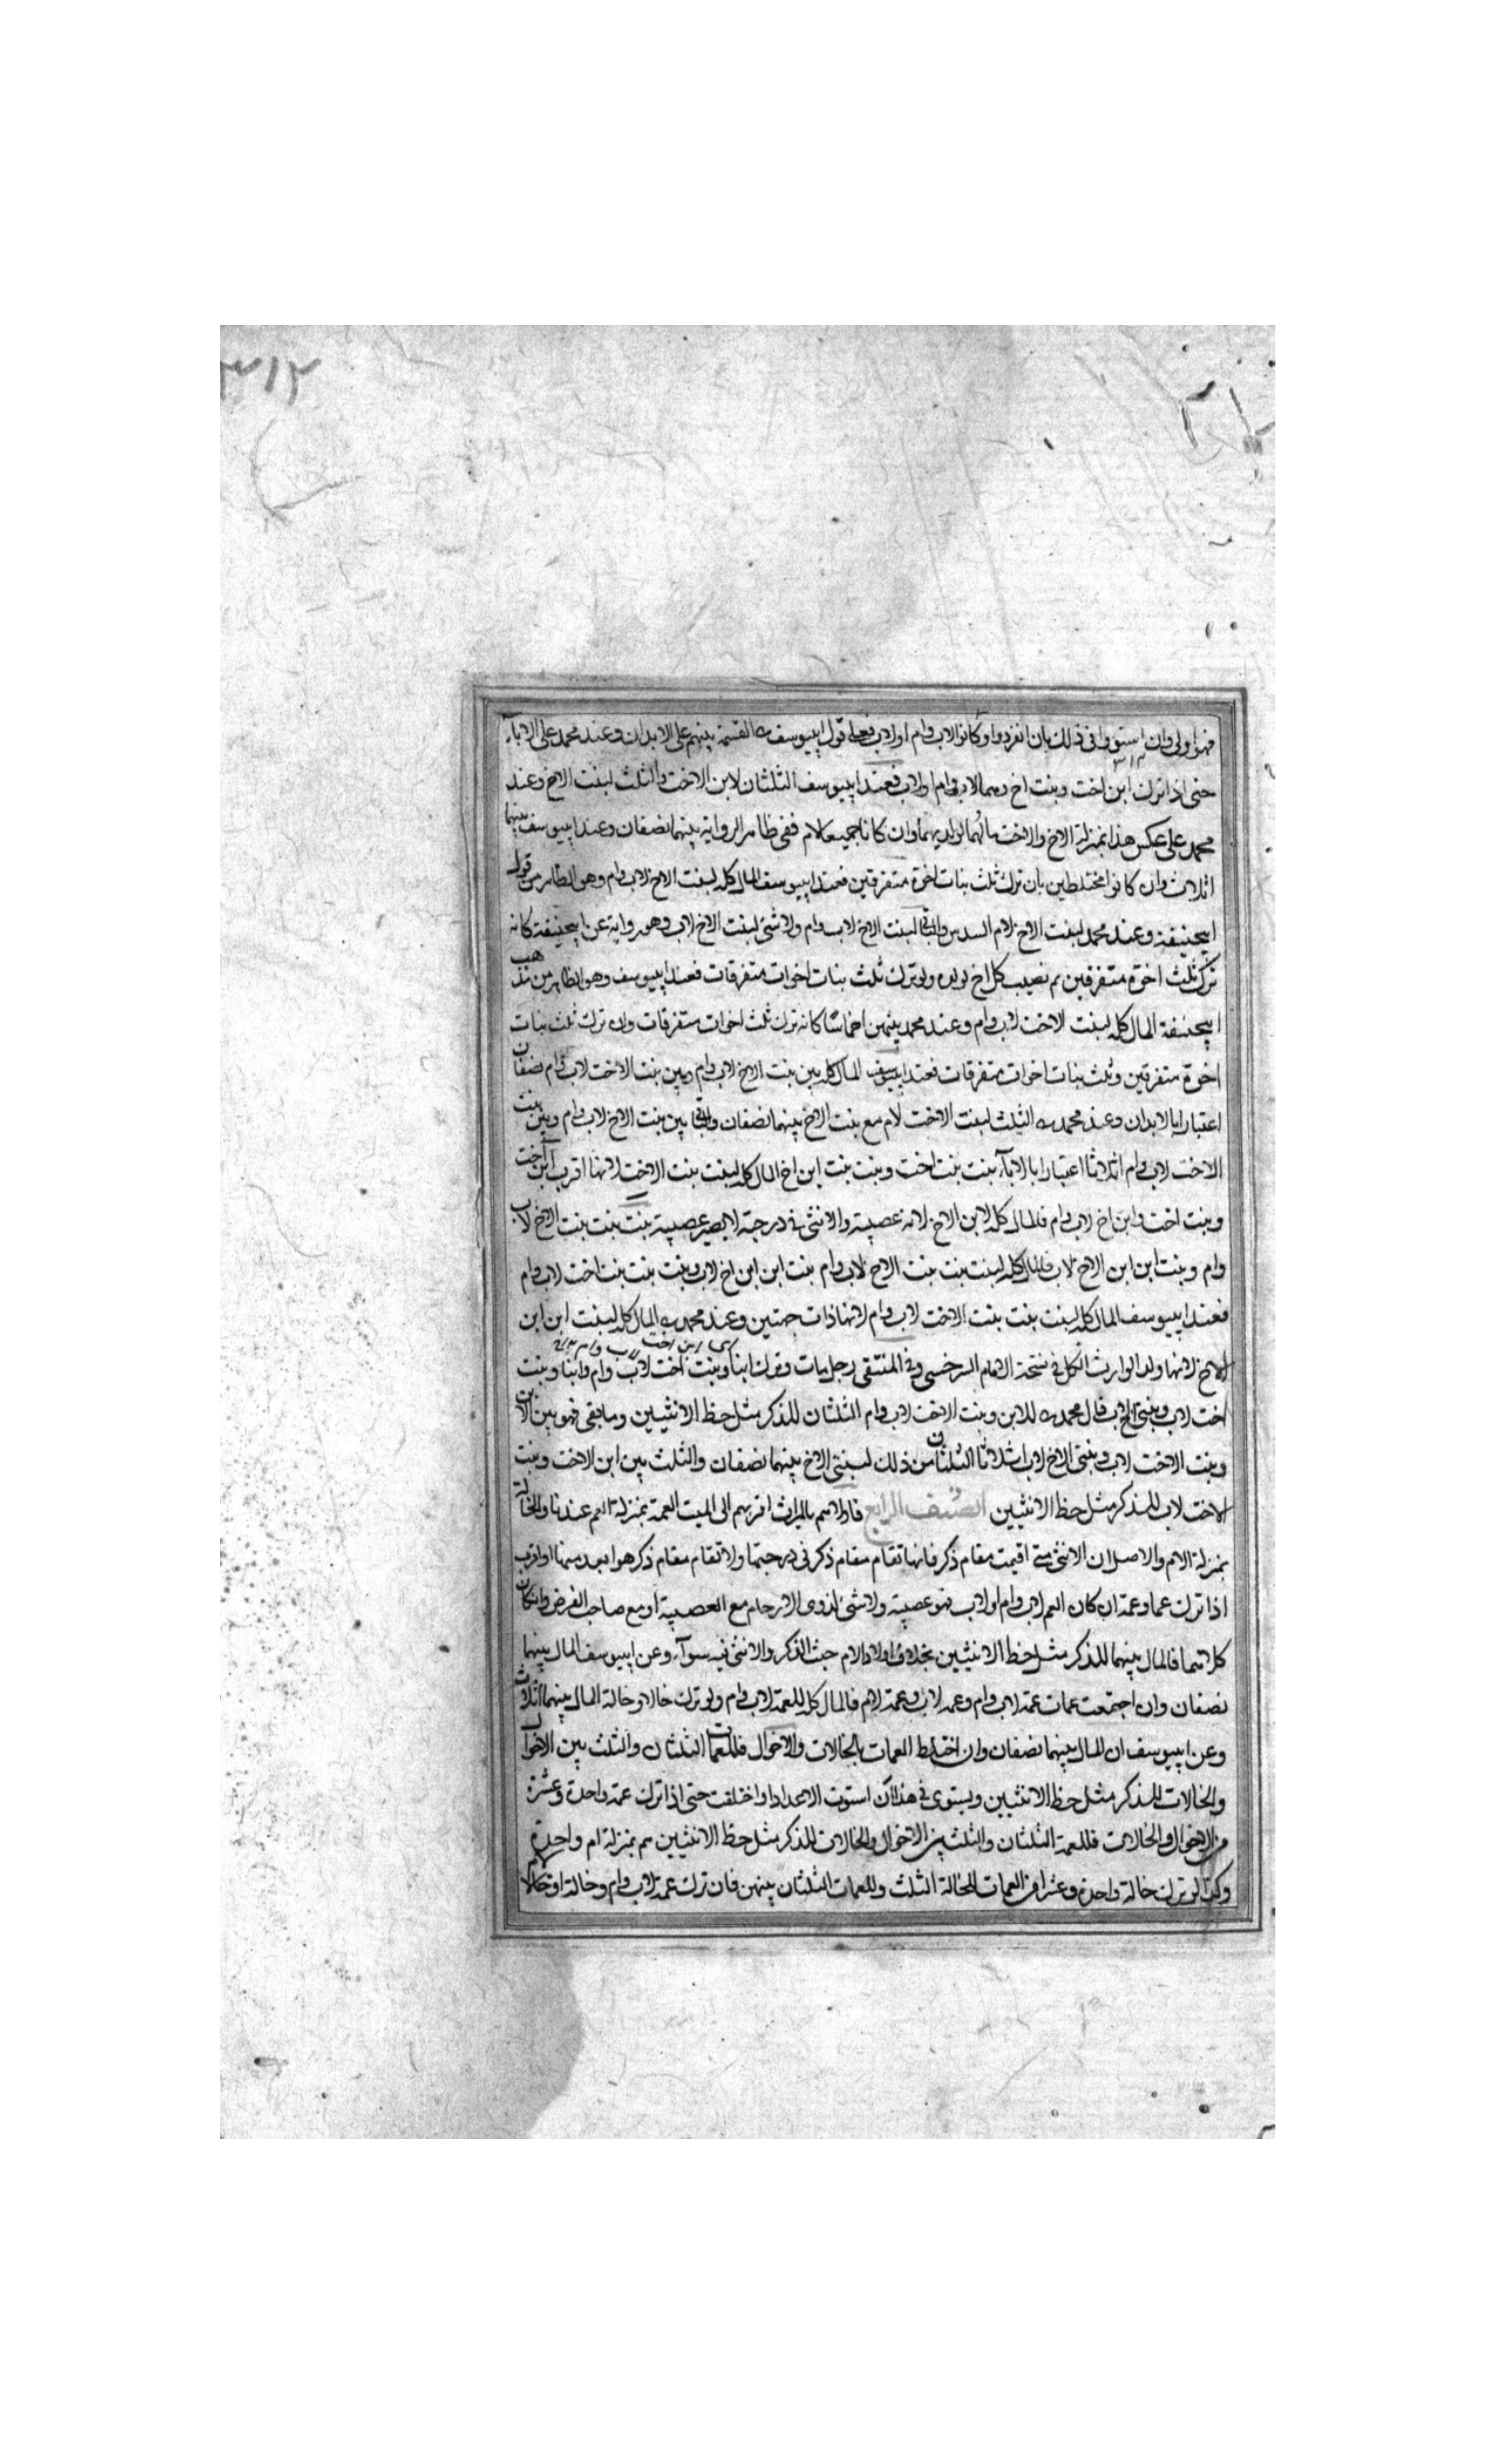 ٣١٢
فهو اولى وان استووا فى ذلك بان انفردوا وكانوا لاب وام او لاب فعلى قول ابيوسف رح القسمة بينهم على الابدان وعند محمد على الاباء
حتى اذا ترك ابن اخت وبنت اخ وهما لاب وام او لاب فعند ابيوسف الثلثان لابن الاخت والثلث لبنت الاخ وعند
محمد على عكس هذا بمنزلة الاخ والاخت مالهما لولديهما وان كانا جميعا لام ففى ظاهر الرواية بينهما نصفان وعند ابيوسف بينهما
اثلاث وان كانوا مختلطين بان ترك ثلث بنات اخوة متفرقين فعند ابيوسف المال كله لبنت الاخ لاب وام وهو الظاهر من قول
ابيحنيفة وعند محمد لبنت الاخ لام السدس والباقى لبنت الاخ لاب وام ولا شئ لبنت الاخ لاب وهو رواية عن ابيحنيفة كانه
ترك ثلث اخوة متفرقين ثم نصيب كل اخ لولده ولو ترك ثلث بنات اخوات متفرقات فعند ابيوسف وهو الظاهر من مذهب
ابيحنيفة المال كله لبنت الاخت لاب وام وعند محمد بينهن اخماسا كانه ترك ثلث اخوات متفرقات وان ترك ثلث بنات
اخوة متفرقين وثلث بنات اخوات متفرقات فعند ابيوسف المال كله بين بنت الاخ لاب وام وبين بنت الاخت لاب وام نصفان
اعتبارا بالابدان وعند محمد رح الثلث لبنت الاخت لام مع بنت الاخ بينهما نصفان والباقى بين بنت الاخ لاب وام وبين بنت
الاخت لاب وام اثلاثا اعتبارا بالاباء بنت بنت اخت وبنت بنت ابن اخ المال كله لبنت بنت الاخت لانها اقرب ابن اخت
وبنت اخت وابن اخ لاب وام فالمال كله لابن الاخ لانه عصبة والانثى فى درجته لا يصير عصبة بنت بنت بنت الاخ لاب
وام وبنت ابن ابن الاخ لاب فالمال كله لبنت بنت بنت الاخ لاب وام بنت ابن ابن اخ لاب وبنت بنت بنت اخت لاب وام
فعند ابيوسف المال كله لبنت بنت بنت الاخت لاب وام لانها ذات جهتين وعند محمد رح المال كله لبنت ابن ابن
الاخ لانها ولد الوارث الكل فى نسخة الامام السرخسى وفى المنتقى رجل مات وترك ابنا وبنت اخت لاب وام وابنا وبنت
اخت لاب وبنتى اخ لاب قال محمد رح للابن وبنت الاخت لاب وام الثلثان للذكر مثل حظ الانثيين وما بقى فهو بين الابن
وبنت الاخت لاب وبنتى الاخ لاب اثلاثا الثلثان من ذلك لبنتى الاخ بينهما نصفان والثلث بين ابن الاخت وبنت
الاخت لاب للذكر مثل حظ الانثيين الصنف الرابع فاولاهم بالميراث اقربهم الى الميت العمة بمنزلة العم عندنا والخالة
بمنزلة الام والاصل ان الانثى متى اقيمت مقام ذكر فانها تقام مقام ذكر فى درجتها ولا تقام مقام ذكر هو ابعد منها او اقرب
اذا ترك عما وعمة ان كان العم لاب وام او لاب فهو عصبة ولا شئ لذوى الارحام مع العصبة او مع صاحب الفرض وان كان
كلاهما فالمال بينهما للذكر مثل حظ الانثيين بخلاف اولاد الام حيث الذكر والانثى فيه سواء وعن ابيوسف المال بينهما
نصفان وان اجتمعت عمات عمة لاب وام وعمة لاب وعمة لام فالمال كله للعمة لاب وام ولو ترك خالا وخالة المال بينهما اثلاث
وعن ابيوسف ان المال بينهما نصفان وان اختلط العمات بالخالات والاخوال فللعمات الثلثان والثلث بين الاخوال
والخالات للذكر مثل حظ الانثيين ويستوى فى هذا ان استوت الاعداد او اختلفت حتى اذا ترك عمة واحدة وعشرة
من الاخوال والخالات فللعمة الثلثان والثلث بين الاخوال والخالات للذكر مثل حظ الانثيين هم بمنزلة ام واحدة
وكذا لو ترك خالة واحدة وعشرا من العمات للخالة الثلث وللعمات الثلثان بينهن فان ترك عمة لاب وام وخالة او خالا